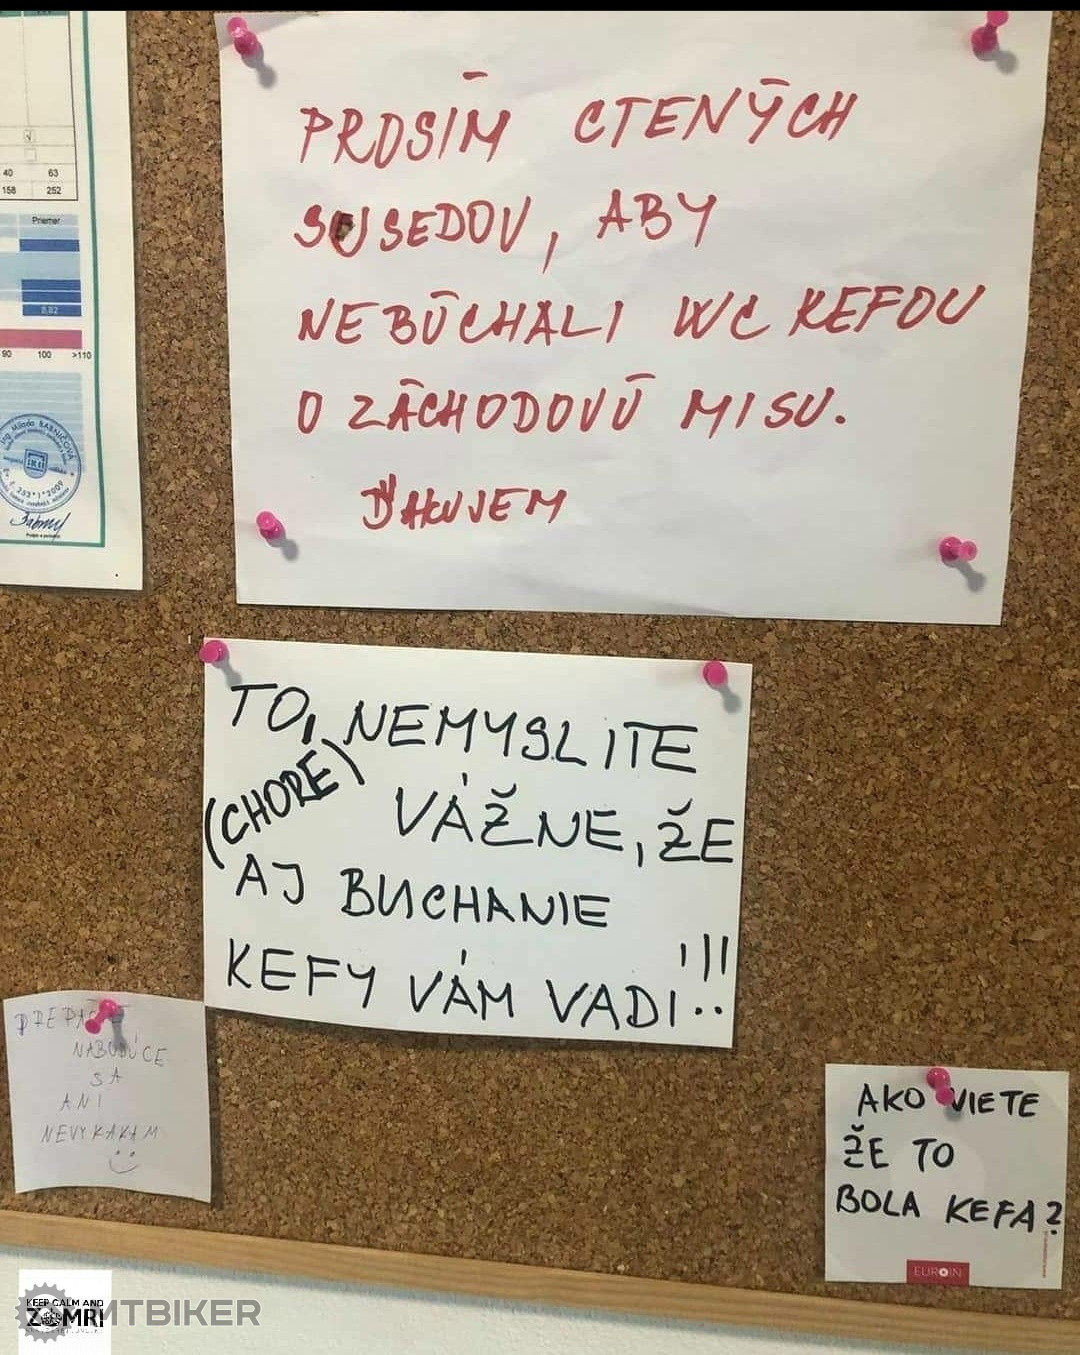 PROSÍM CTENÝCH
SUSEDOV, ABY
NEBÚCHALI WC KEFOU
O ZÁCHODOVÚ MISU.
ĎAKUJEM
TO, NEMYSLITE
(CHORE)
VÁŽNE, ŽE
AJ BUCHANIE
KEFY VÁM VADI!!!
NABUDÚCE
SA
ANI
NEVYKAKAM
AKO VIETE
ŽE TO
BOLA KEFA?
EUROIN
40 63
158 252
Priemer
8,82
90 100 >110
Ing. Milada BABNIČOVÁ
KEEP CALM AND
ZOMRI
MTBIKER